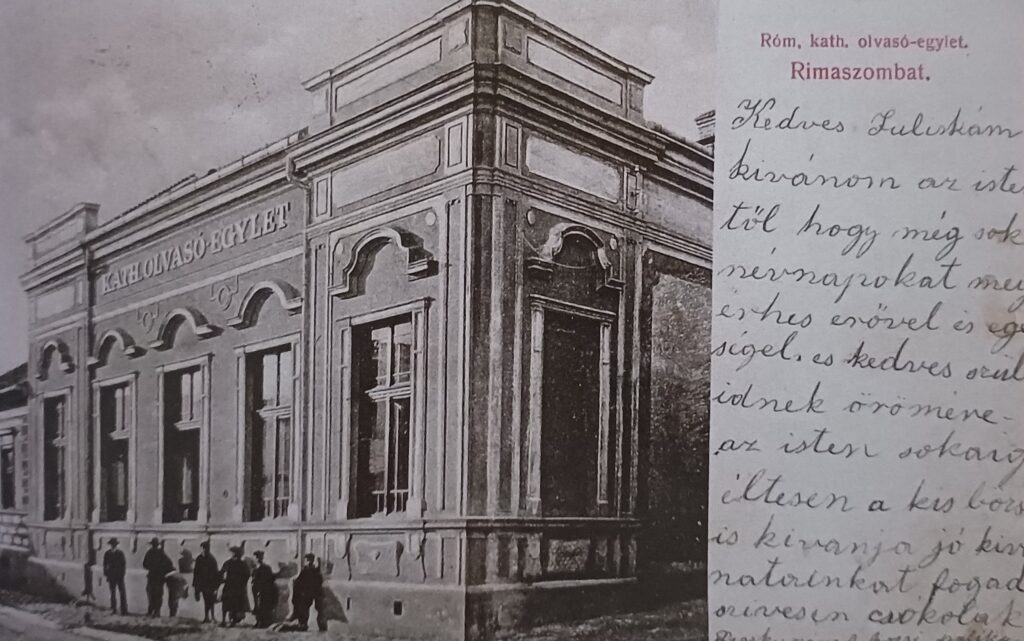 KATH. OLVASÓ-EGYLET
Róm. kath. olvasó-egylet.
Rimaszombat.
Kedves Juliskám
kivánom az iste
től hogy még sok
névnapokat meg
érhes erővel és egé
ségel. es kedves szül
idnek örömére-
az isten sokaig
éltesen a kis
is kivanja jó kiv
natainkat fogad
szivesen csókolak